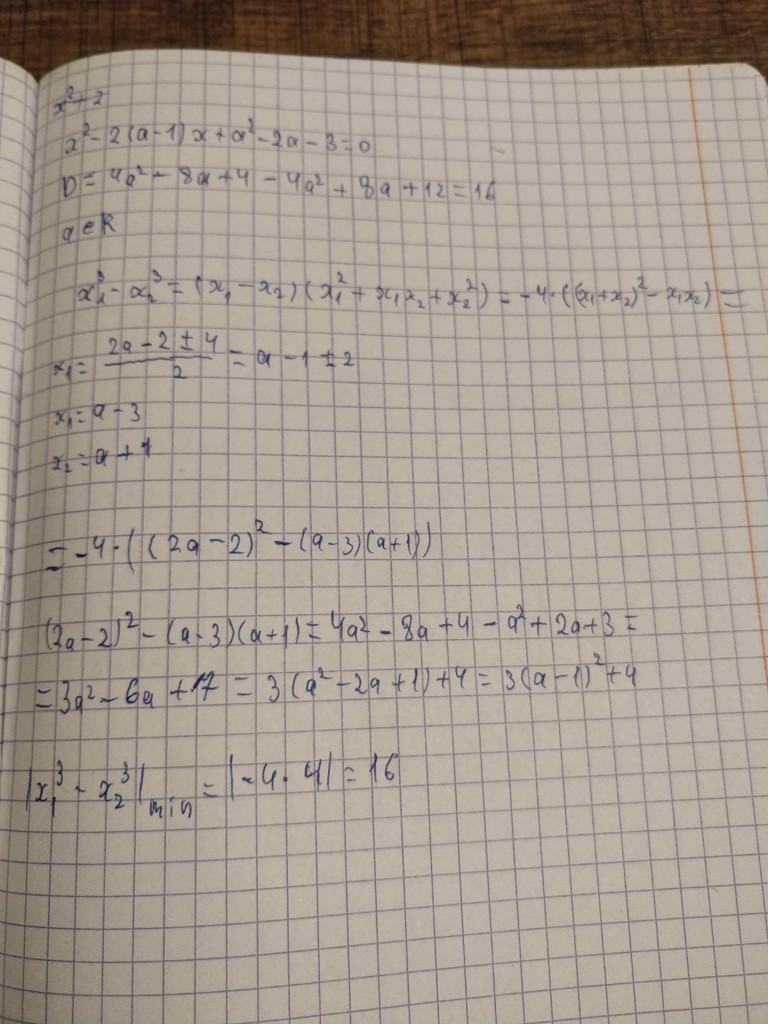 x²+2
x²-2(a-1)x+a²-2a-3=0
D=4a²-8a+4-4a²+8a+12=16
a∈R
x₁³-x₂³=(x₁-x₂)(x₁²+x₁x₂+x₂²)=-4·((x₁+x₂)²-x₁x₂)=
x₁=(2a-2±4)/2=a-1±2
x₁=a-3
x₂=a+1
=-4·((2a-2)²-(a-3)(a+1))
(2a-2)²-(a-3)(a+1)=4a²-8a+4-a²+2a+3=
=3a²-6a+7=3(a²-2a+1)+4=3(a-1)²+4
|x₁³-x₂³|min=|-4·4|=16